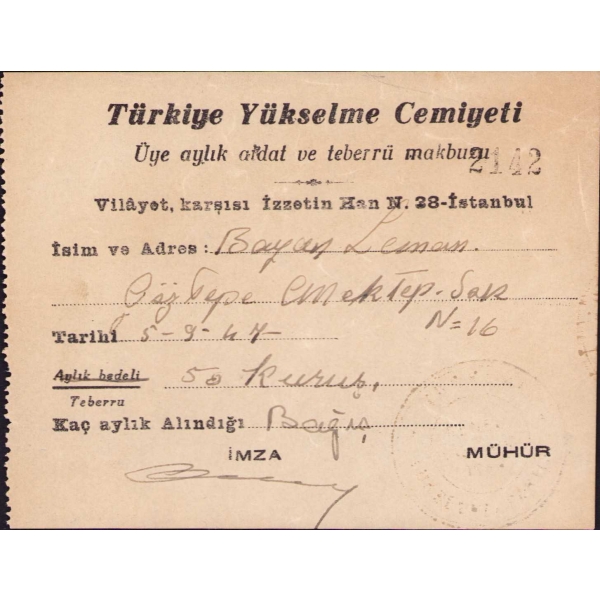 Türkiye Yükselme Cemiyeti
Üye aylık aidat ve teberrü makbuzu 2142
Vilâyet, karşısı İzzetin Han N. 28-İstanbul
İsim ve Adres : Bayan Leman.
Göztepe Mektep. Sok
Tarihi 5-9-47 N=16
Aylık bedeli 50 kuruş.
Teberru
Kaç aylık Alındığı Bağış
İMZA MÜHÜR